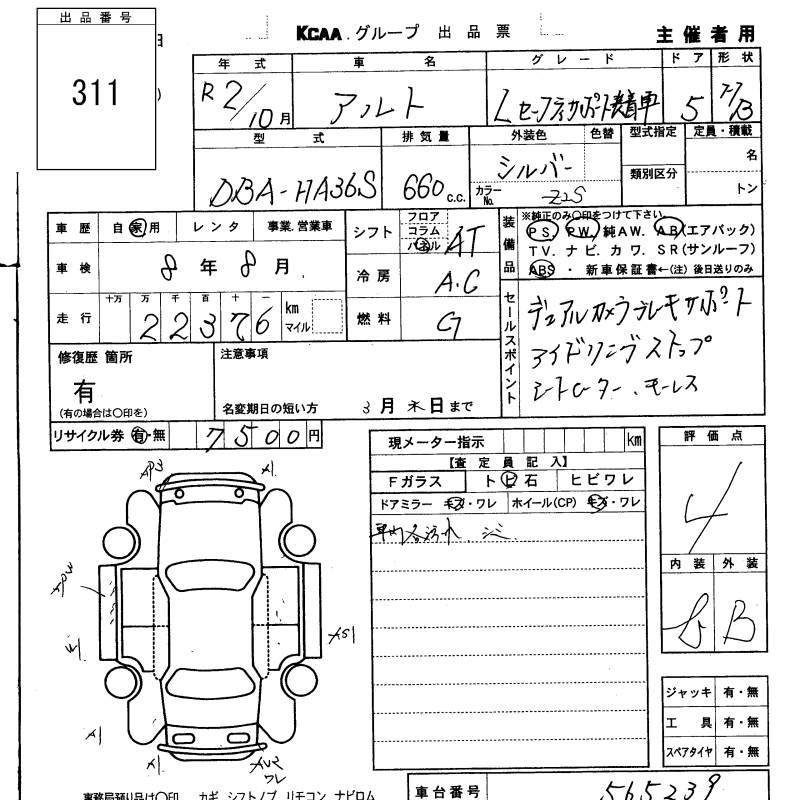 出品番号
311
KCAA.グループ 出品票
主催者用
年式 車名 グレード ドア 形状
R2/10月 アルト L セーフティサポート装着車 5 F/B
型式 排気量 外装色 色替 型式指定 定員・積載
DBA-HA36S 660 c.c. シルバー 名
カラーNo. Z2S 類別区分 トン
車歴 自家用 レンタ 事業.営業車
シフト フロア コラム パネル AT
装備品 ※純正のみ○印をつけて下さい
P S. P W. 純AW. A B(エアバック)
T V. ナ ビ. カ ワ. S R(サンルーフ)
ABS ・ 新車保証書←(注) 後日送りのみ
車検 8年8月
冷房 A.C
走行 十万 万 千 百 十 一
22376 km マイル
燃料 G
セールスポイント
デュアルカメラブレーキサポート
アイドリングストップ
シートヒーター、キーレス
修復歴 箇所
有
(有の場合は○印を)
注意事項
名変期日の短い方 3月末日まで
リサイクル券 有・無 7500円
現メーター指示 km
【査定員記入】
Fガラス トビ石 ヒビワレ
ドアミラー キズ・ワレ ホイール(CP) キズ・ワレ
車内各汚れ、シミ
評価点
4
内装 外装
B
AP3
A1
APW
AS1
A1
A1
ワレ
ジャッキ 有・無
工具 有・無
スペアタイヤ 有・無
車台番号 565239
事務局預り品は○印 カギ シフトノブ リモコン ナビロム